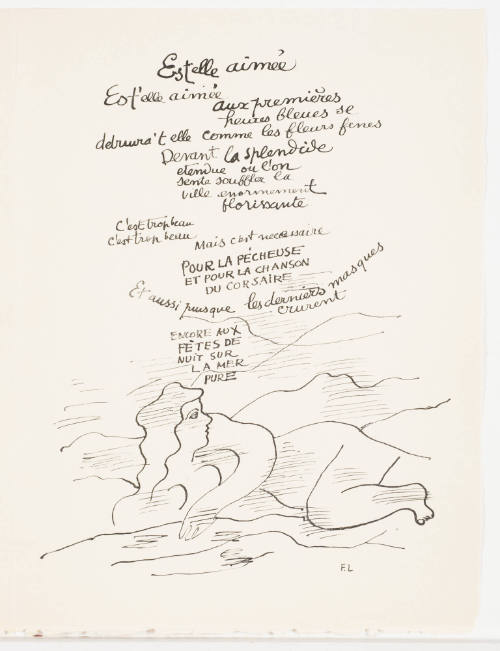 Est elle aimée
Est'elle aimée
aux premières
heures bleues se
detruira't elle comme les fleurs fenes
Devant la splendide
etendue ou l'on
sente souffler la
ville enormement
florissante
C'est trop beau
c'est trop beau
Mais c'est necessaire
POUR LA PÊCHEUSE
ET POUR LA CHANSON
DU CORSAIRE
Et aussi puisque les derniers masques
crurent
ENCORE AUX
FÊTES DE
NUIT SUR
LA MER
PURE
F.L